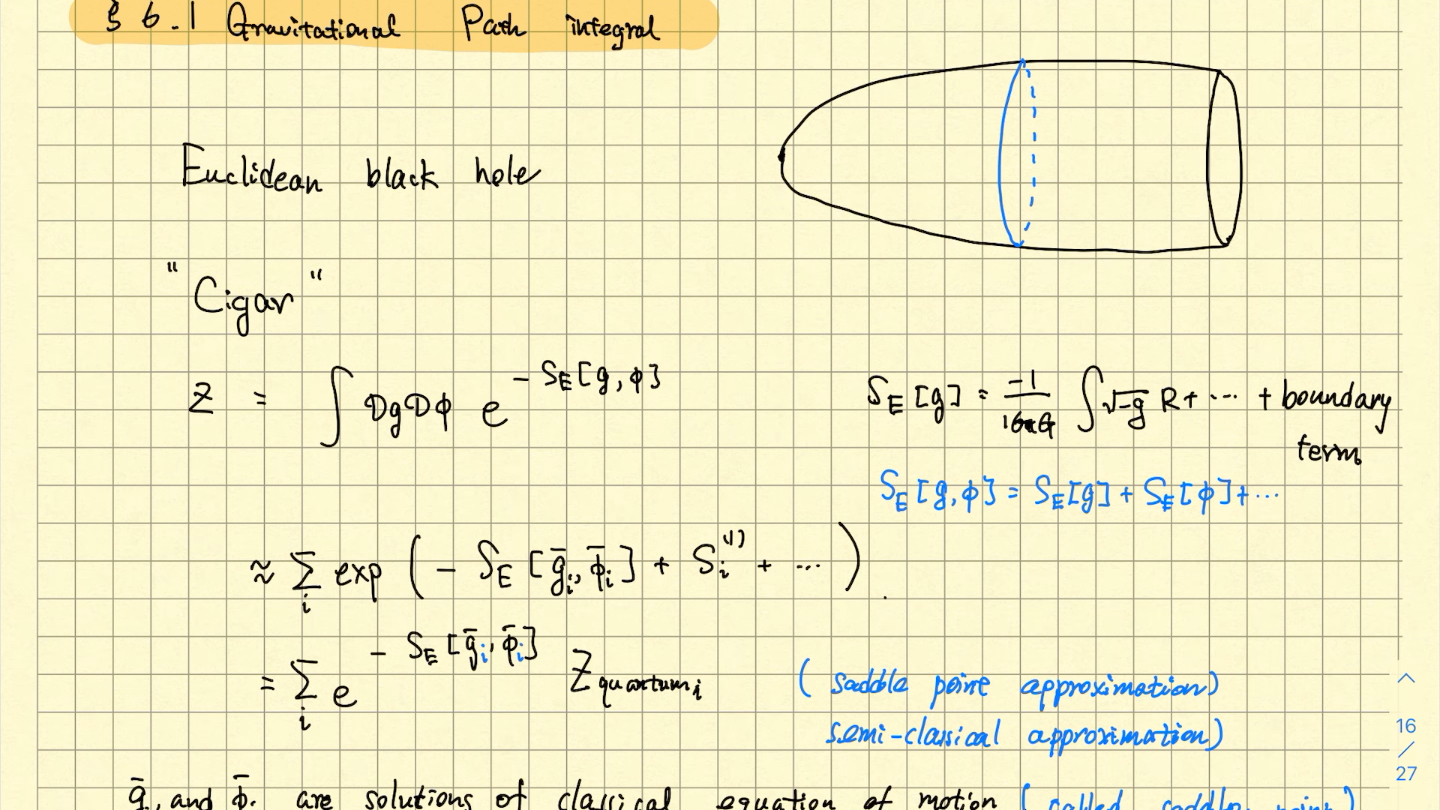 § 6.1 Gravitational Path integral
Euclidean black hole
"Cigar"
Z = ∫ DgDϕ e^{- S_E[g,ϕ]}
S_E[g] = \frac{-1}{16πG} ∫ √-g R + ··· + boundary
term
S_E[g,ϕ] = S_E[g] + S_E[ϕ] + ···
≈ Σ_i exp ( - S_E [ḡ_i, ϕ̄_i] + S_i^{(1)} + ··· )
= Σ_i e^{- S_E[ḡ_i, ϕ̄_i]} Z_{quantum_i}
(saddle point approximation)
semi-classical approximation)
ḡ, and ϕ̄. are solutions of classical equation of motion (called saddle point)
16
/
27